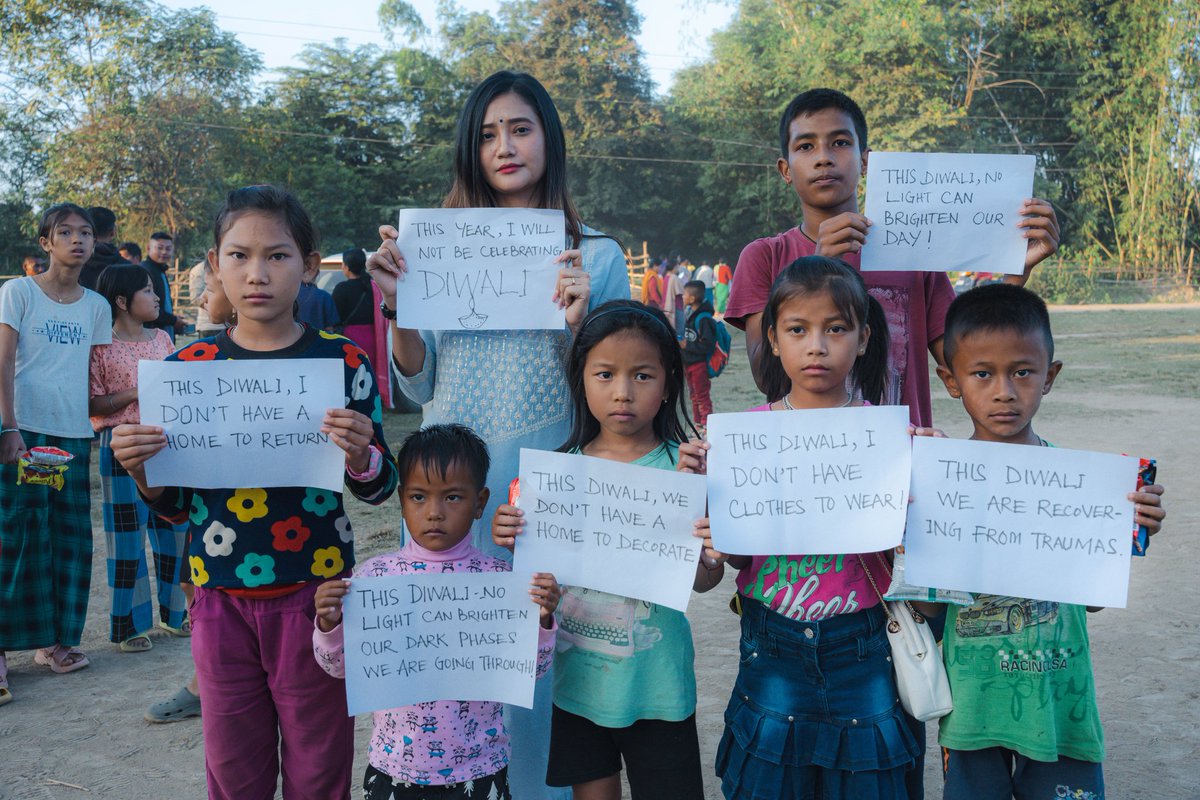 THIS YEAR, I WILL
NOT BE CELEBRATING
DIWALI
THIS DIWALI, NO
LIGHT CAN
BRIGHTEN OUR
DAY!
THIS DIWALI, I
DON'T HAVE A
HOME TO RETURN
THIS DIWALI, WE
DON'T HAVE A
HOME TO DECORATE
THIS DIWALI, I
DON'T HAVE
CLOTHES TO WEAR!
THIS DIWALI
WE ARE RECOVER-
ING FROM TRAUMAS.
THIS DIWALI-NO
LIGHT CAN BRIGHTEN
OUR DARK PHASES
WE ARE GOING THROUGH!
VIEW
Cheer
RACING